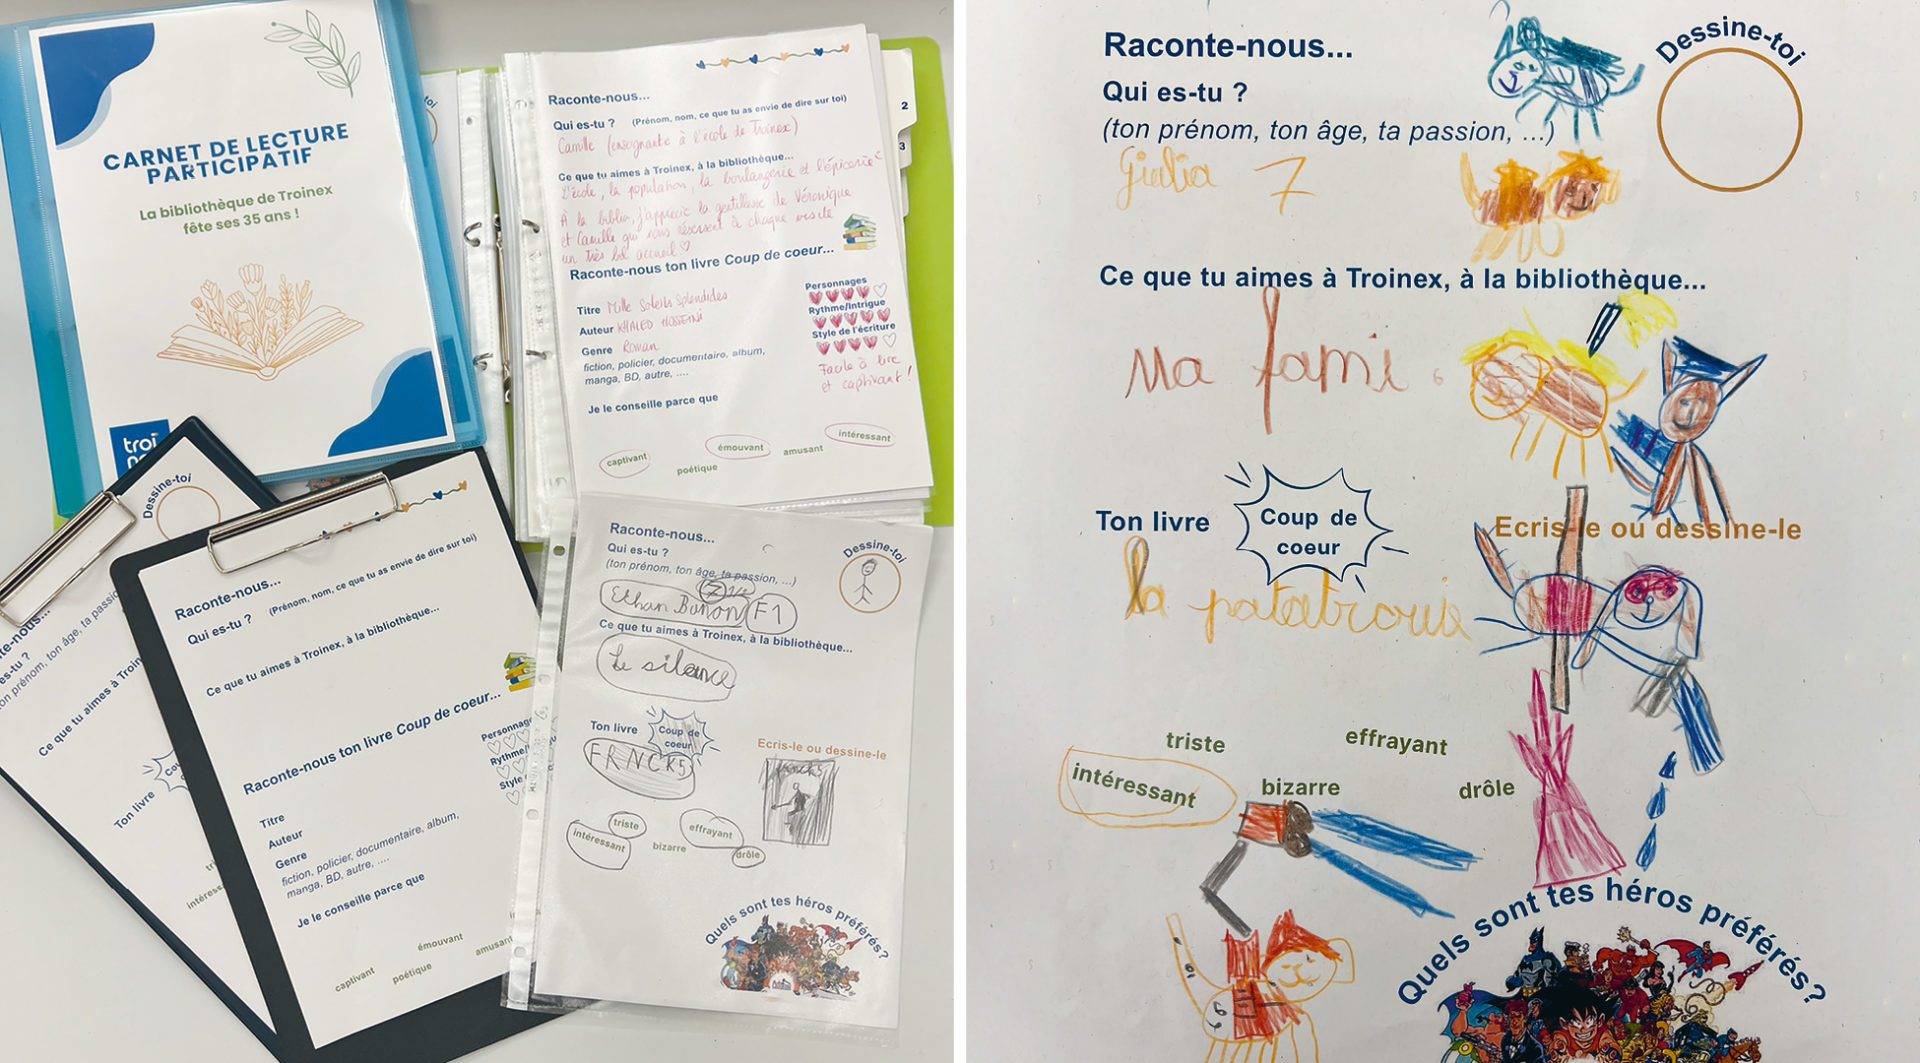 CARNET DE LECTURE
PARTICIPATIF
La bibliothèque de Troinex
fête ses 35 ans !
troi
2
3
Raconte-nous...
Qui es-tu ? (Prénom, nom, ce que tu as envie de dire sur toi)
Camille (enseignante à l'école de Troinex)
Ce que tu aimes à Troinex, à la bibliothèque...
L'école, la population, la boulangerie et l'épicerie
À la biblio, j'apprécie la gentillesse de Véronique
et Camille qui nous réservent à chaque visite
un très bel accueil ♡
Raconte-nous ton livre Coup de coeur...
Titre Mille Soleils Splendides
Auteur KHALED HOSSEINI
Genre Roman
fiction, policier, documentaire, album,
manga, BD, autre, ....
Je le conseille parce que
Personnages
Rythme/Intrigue
Style de l'écriture
Facile à lire
et captivant !
captivant
émouvant
intéressant
poétique
amusant
Dessine-toi
Ce que tu aimes à Troin
Ton livre
Raconte-nous...
Qui es-tu ? (Prénom, nom, ce que tu as envie de dire sur toi)
Ce que tu aimes à Troinex, à la bibliothèque...
Raconte-nous ton livre Coup de coeur...
Personnag
Rythme/I
Style
Titre
Auteur
Genre
fiction, policier, documentaire, album,
manga, BD, autre, ....
Je le conseille parce que
émouvant
amusant
captivant
poétique
Raconte-nous...
Qui es-tu ?
(ton prénom, ton âge, ta passion, ...)
Dessine-toi
Ethan Bonon F1
Ce que tu aimes à Troinex, à la bibliothèque...
Le silence
Ton livre
Coup de
coeur
Ecris-le ou dessine-le
FRNCK5
triste
effrayant
intéressant
bizarre
drôle
Quels sont tes héros préférés?
Raconte-nous...
Dessine-toi
Qui es-tu ?
(ton prénom, ton âge, ta passion, ...)
Giulia 7
Ce que tu aimes à Troinex, à la bibliothèque...
Ma fami
Ton livre
Coup de
coeur
Ecris-le ou dessine-le
la patatrouie
triste
effrayant
intéressant
bizarre
drôle
Quels sont tes héros préférés?